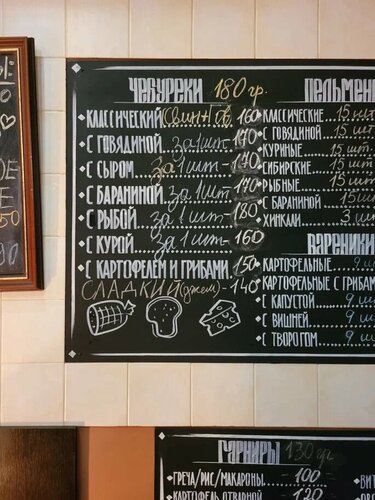 ЧЕБУРЕКИ 180 гр.
КЛАССИЧЕСКИЙ (Свин+Гов) 160
С ГОВЯДИНОЙ за 1 шт- 170
С СЫРОМ за 1 шт- 170
С БАРАНИНОЙ за 1 шт- 170
С РЫБОЙ за 1 шт- 180
С КУРОЙ за 1 шт- 160
С КАРТОФЕЛЕМ И ГРИБАМИ 150
СЛАДКИЙ (джем)-140
ПЕЛЬМЕН
КЛАССИЧЕСКИЕ 15 шт
С ГОВЯДИНОЙ 15 шт
КУРНЫЕ 15 шт.
СИБИРСКИЕ 15 шт
РЫБНЫЕ 15 шт
С БАРАНИНОЙ 15 шт
ХИНКАЛИ 3 шт
ВАРЕНИКИ
КАРТОФЕЛЬНЫЕ 9 ш
КАРТОФЕЛЬНЫЕ С ГРИБАМ
С КАПУСТОЙ 9 ш
С ВИШНЕЙ 9 ш
С ТВОРОГОМ 9 ш
ГАРНИРЫ 130 гр
ГРЕЧА/РИС/МАКАРОНЫ -100-
КАРТОФЕЛЬ ОТВАРНОЙ 120
ВИТ